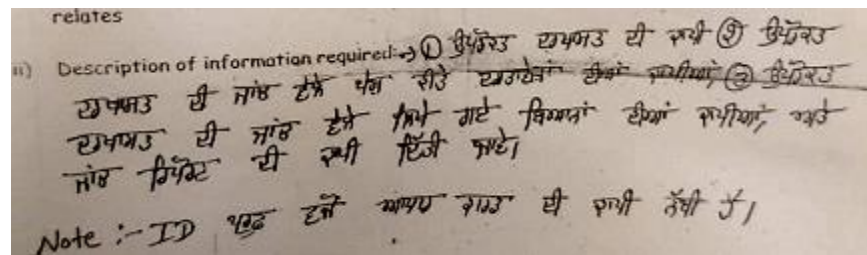 relates
ii) Description of information required:-> ① ਉਪਰੋਕਤ ਦਰਖਾਸਤ ਦੀ ਕਾਪੀ ② ਉਪਰੋਕਤ
ਦਰਖਾਸਤ ਦੀ ਜਾਂਚ ਵਜੋਂ ਪੇਸ਼ ਕੀਤੇ ਦਸਤਾਵੇਜਾਂ ਦੀਆਂ ਕਾਪੀਆਂ, ③ ਉਪਰੋਕਤ
ਦਰਖਾਸਤ ਦੀ ਜਾਂਚ ਵਜੋਂ ਲਿਖੇ ਗਏ ਬਿਆਨਾਂ ਦੀਆਂ ਕਾਪੀਆਂ, ਅਤੇ
ਜਾਂਚ ਰਿਪੋਰਟ ਦੀ ਕਾਪੀ ਦਿੱਤੀ ਜਾਵੇ।
Note :- ID ਪਰੂਫ ਵਜੋਂ ਅਧਾਰ ਕਾਰਡ ਦੀ ਕਾਪੀ ਨੱਥੀ ਹੈ।